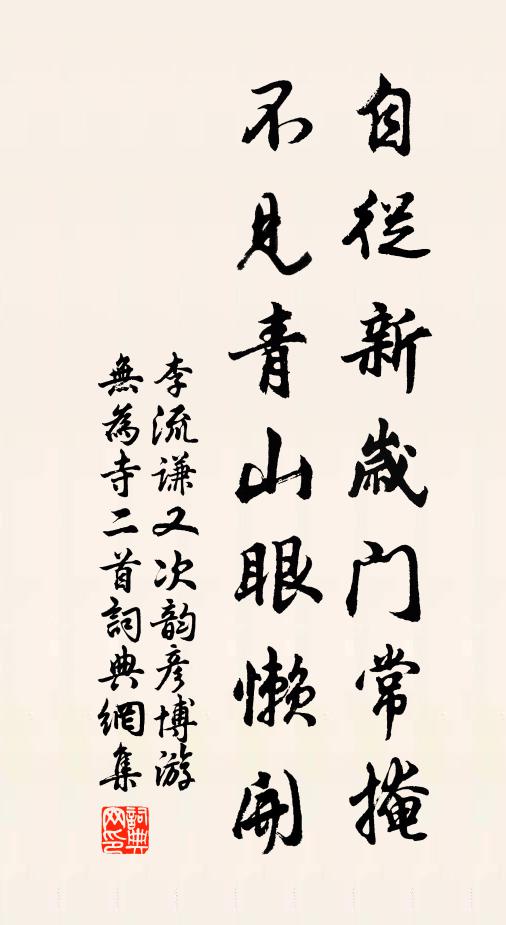 自從新歲门常掩
不見青山眼懶開
李流謙又次韵彦博游
無為寺二首詞典網集
詞典
网印